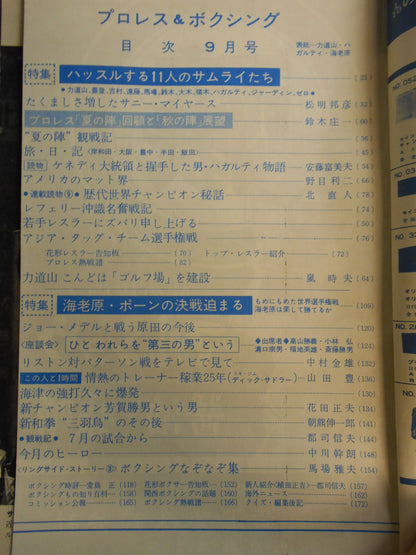 プロレス&ボクシング
目次 9月号
表紙―力道山・ハガルティ・海老原
特集 ハッスルする11人のサムライたち (21)
●力道山、豊登、吉村、遠藤、馬場、鈴木、大木、猪木、ハガルティ、ジャーディン、ゼロ●
たくましさ増したサニー・マイヤース 松明邦彦 (32)
プロレス「夏の陣」回顧と「秋の陣」展望 鈴木庄一 (60)
"夏の陣"観戦記 (36)
旅・日・記 (岸和田・大阪・豊中・半田・飯田) (45)
読物 ケネディ大統領と握手した男・ハガルティ物語 安藤富美夫 (54)
アメリカのマット界 野目利二 (66)
●連載読物⑨● 歴代世界チャンピオン秘話 北直人 (78)
レフェリー沖識名奮戦記 (74)
若手レスラーにズバリ申し上げる (50)
アジア・タッグ・チーム選手権戦 (76)
花形レスラー告知板 (70) トップ・レスラー紹介 (72)
プロレス熱戦譜 (82)
力道山 こんどは「ゴルフ場」を建設 嵐時夫 (64)
特集 海老原・ポーンの決戦迫まる もめにもめた世界選手権戦 海老原は果して勝てるか (109)
ジョー・メデルと戦う原田の今後 (120)
〈座談会〉 ひと われらを"第三の男"という ◆出席者◆高山勝義・小林弘 溝口宗男・福地英雄・斎藤勝男 (124)
リストン対パターソン戦をテレビで見て 中村金雄 (132)
この人と1時間 情熱のトレーナー稼業25年 (ディック・サドラー) 山田豊 (136)
海津の強打久々に爆発 (130)
新チャンピオン芳賀勝男という男 花田正夫 (134)
新和拳"三羽烏"のその後 朝熊伸一郎 (141)
●観戦記● 7月の試合から 郡司信夫 (144)
今月のヒーロー 中川幹朗 (148)
〈リングサイド・ストーリー③〉 ボクシングなぞなぞ集 馬場雅夫 (154)
ボクシング時評―堂島正 (118) 花形ボクサー告知板 (152) 新人紹介(横田正吉)―郡司信夫 (157)
ボクシングもの知り百科 (158) 関西ボクシングの話題 (160) 海外ニュース (162)
コミッション公報 (165) ボクシング熱戦譜 (166) クイズ・編集後記 (172)